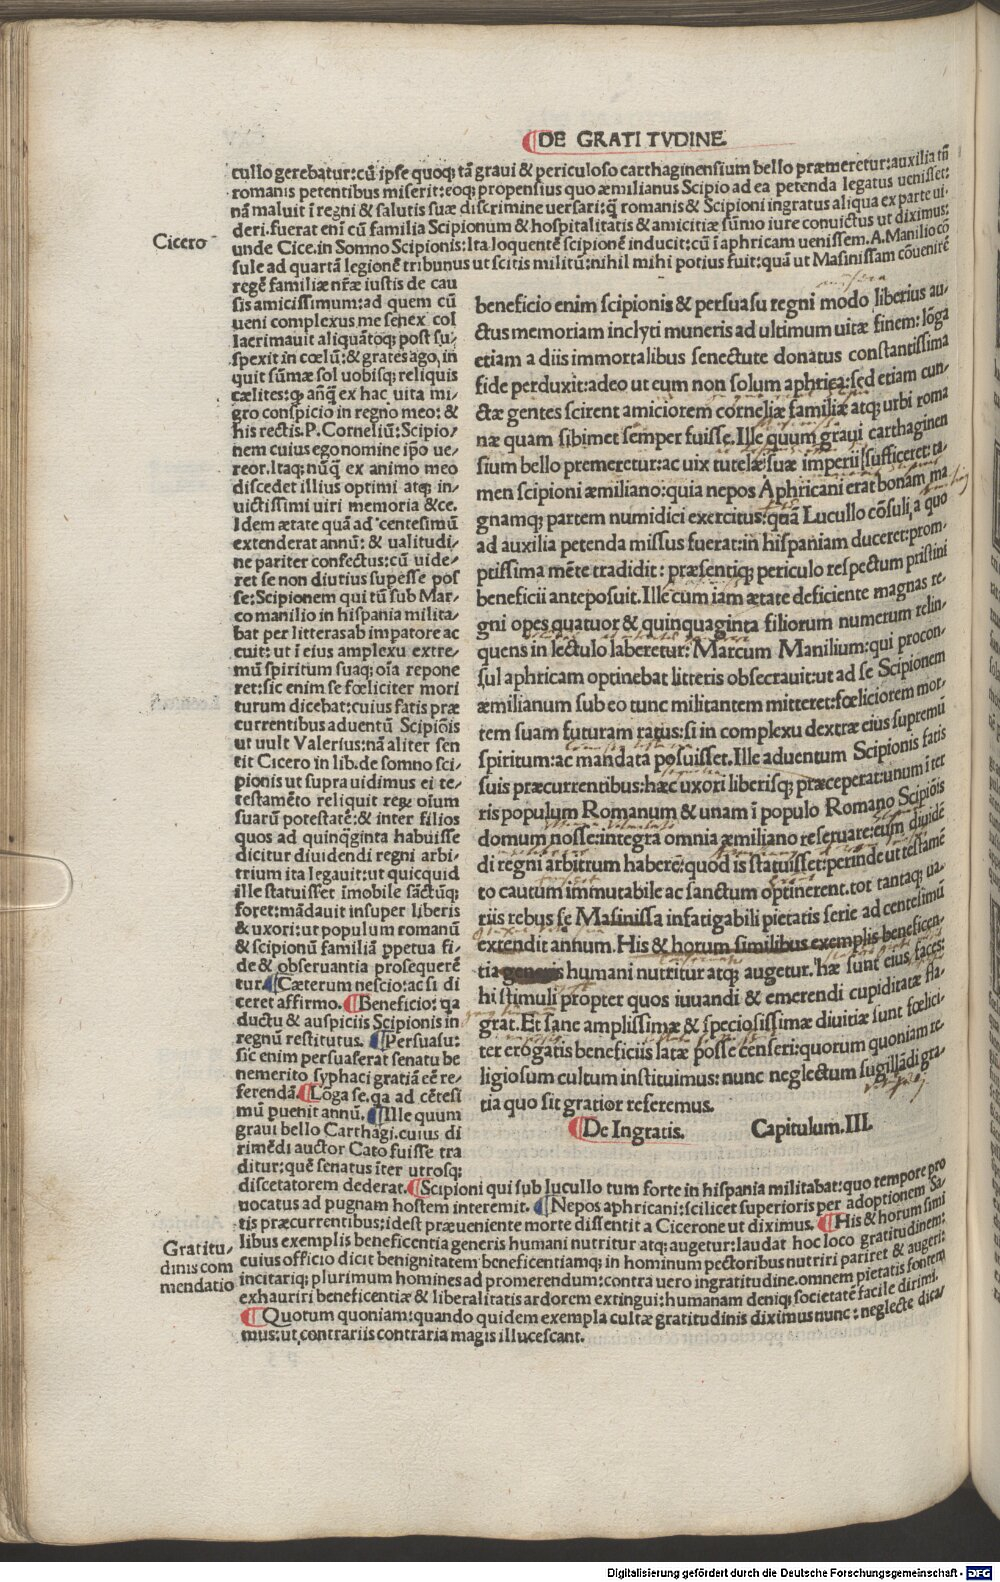 DE GRATITVDINE.
cullo gerebatur:cū ipſe quoq; tā graui & periculoſo carthaginenſium bello præmeretur:auxilia tñ
romanis petentibus miſerit:eoq; propenſius quo æmilianus Scipio ad ea petenda legatus ueniſſet:
nā maluit ī regni & ſalutis ſuæ diſcrimine uerſari:q̄ romanis & Scipioni ingratus aliqua ex parte ui⸗
deri.fuerat enī cū familia Scipionum & hoſpitalitatis & amicitiæ ſūmo iure conuictus ut diximus:
Cicero
unde Cice.in Somno Scipionis:Ita loquentē ſcipionē inducit:cū ī aphricam ueniſſem.A.Manilio cō
ſule ad quartā legionē tribunus ut ſcitis militū:nihil mihi potius fuit:quā ut Maſiniſſam cōuenirē
regē familiæ nr̄æ iuſtis de cau
ſis amiciſſimum:ad quem cū
ueni complexus me ſenex col
lacrimauit aliquātoq; poſt ſu⸗
ſpexit in cœlū:& grates ago, in
quit ſūmæ ſol uobiſq; reliquis
cælites:q; añq̄ ex hac uita mi⸗
gro conſpicio in regno meo:&
his rectis.P.Corneliū:Scipio⸗
nem cuius ego nomine ip̄o ue⸗
reor.Itaq; nūq̄ ex animo meo
diſcedet illius optimi atq; in⸗
uictiſſimi uiri memoria &ce.
Idem ætate quā ad centeſimū
extenderat annū: & ualitudi⸗
ne pariter confectus:cū uide⸗
ret ſe non diutius ſupeſſe poſ
ſe:Scipionem qui tū ſub Mar⸗
co manilio in hiſpania milita⸗
bat per litteras ab impatore ac
cuit: ut ī eius amplexu extre⸗
mū ſpiritum ſuaq; oīa repone
ret:ſic enim ſe fœliciter mori
turum dicebat:cuius fatis præ
currentibus aduentū Scipiōis
ut uult Valerius:nā aliter ſen
tit Cicero in lib.de ſomno ſci⸗
pionis ut ſupra uidimus ei te⸗
teſtamēto reliquit reꝝ oīum
ſuarū poteſtatē:& inter filios
quos ad quinq̄ginta habuiſſe
dicitur diuidendi regni arbi⸗
trium ita legauit:ut quicquid
ille ſtatuiſſet īmobile ſāctūq;
foret:mādauit inſuper liberis
& uxori:ut populum romanū
& ſcipionū familiā ꝑpetua fi⸗
de & obſeruantia proſequerē
tur.¶Cæterum neſcio:ac ſi di
ceret affirmo.¶Beneficio: qa
ductu & auſpiciis Scipionis in
regnū reſtitutus. ¶Perſuaſu:
ſic enim perſuaſerat ſenatu be
nemerito ſyphaci gratiā cē re⸗
ferendā.¶Lōga ſe.qa ad cēteſi
mū puenit annū.¶Ille quum
graui bello Carthagi.cuius di
rimēdi auctor Cato fuiſſe tra
ditur:quē ſenatus iter utroſq;
beneficio enim ſcipionis & perſuaſu regni modo liberius au⸗
ctus memoriam inclyti muneris ad ultimum uitæ finem:lōga
etiam a diis immortalibus ſenectute donatus conſtantiſſima
fide perduxit:adeo ut eum non ſolum aphrica:ſed etiam cun⸗
ctæ gentes ſcirent amiciorem corneliæ familiæ atq; urbi roma
næ quam ſibimet ſemper fuiſſe.Ille quum graui carthaginen
ſium bello premeretur:ac uix tutelæ ſuæ imperii ſufficeret:ta⸗
men ſcipioni æmiliano:quia nepos Aphricani erat bonam ma
gnamq; partem numidici exercitus:quā Lucullo cōſuli,a quo
ad auxilia petenda miſſus fuerat:in hiſpaniam duceret:prom⸗
ptiſſima mēte tradidit: præſentiq; periculo reſpectum priſtini
beneficii antepoſuit.Ille cum iam ætate deficiente magnas re⸗
gni opes quatuor & quinquaginta filiorum numerum relin⸗
quens in lectulo laberetur: Marcum Manilium:qui procon⸗
ſul aphricam optinebat litteris obſecrauit:ut ad ſe Scipionem
æmilianum ſub eo tunc militantem mitteret:fœliciorem mor⸗
tem ſuam futuram ratus:ſi in complexu dextræ eius ſupremū
ſpiritum:ac mandata poſuiſſet.Ille aduentum Scipionis fatis
ſuis præcurrentibus:hæc uxori liberiſq; præceperat:unum īter
ris populum Romanum & unam ī populo Romano Scipiōis
domum noſſe:integra omnia æmiliano reſeruare:eum diuidē
di regni arbitrum haberē:quod is ſtatuiſſet:perinde ut teſtamē
to cautum immutabile ac ſanctum optinerent.tot tantaq; ua⸗
riis rebus ſe Maſiniſſa infatigabili pietatis ſerie ad centeſimū
extendit annum. His & horum ſimilibus exemplis beneficen⸗
tia generis humani nutritur atq; augetur. hæ ſunt eius faces:
hi ſtimuli propter quos iuuandi & emerendi cupiditatæ fla⸗
grat.Et ſane ampliſſimæ & ſpecioſiſſimæ diuitiæ ſunt fœlici⸗
ter erogatis beneficiis latæ poſſe cenſeri:quorum quoniam re⸗
ligioſum cultum inſtituimus: nunc neglectum ſugillādi gra⸗
tia quo ſit gratior referemus.
¶De Ingratis. Capitulum.III.
diſcetatorem dederat.¶Scipioni qui ſub lucullo tum forte in hiſpania militabat:quo tempore pro
uocatus ad pugnam hoſtem interemit. ¶Nepos aphricani:ſcilicet ſuperioris per adoptionem Sa⸗
tis præcurrentibus:ideſt præueniente morte diſſentit a Cicerone ut diximus. ¶His & horum ſimi
Gratitu⸗
dinis com
mendatio
libus exemplis beneficentia generis humani nutritur atq; augetur:laudat hoc loco gratitudinem:
cuius officio dicit benignitatem beneficentiamq; in hominum pectoribus nutriri pariret & augeri:
incitariq; plurimum homines ad promerendum:contra uero ingratitudine.omnem pietatis fontem
exhauriri beneficentiæ & liberalitatis ardorem extingui:humanam deniq; ſocietatē facile dirimi.
¶Quotum quoniam:quando quidem exempla cultæ gratitudinis diximus nunc: neglecte dica⸗
mus:ut contrariis contraria magis illuceſcant.
Digitalisierung gefördert durch die Deutsche Forschungsgemeinschaft - DFG